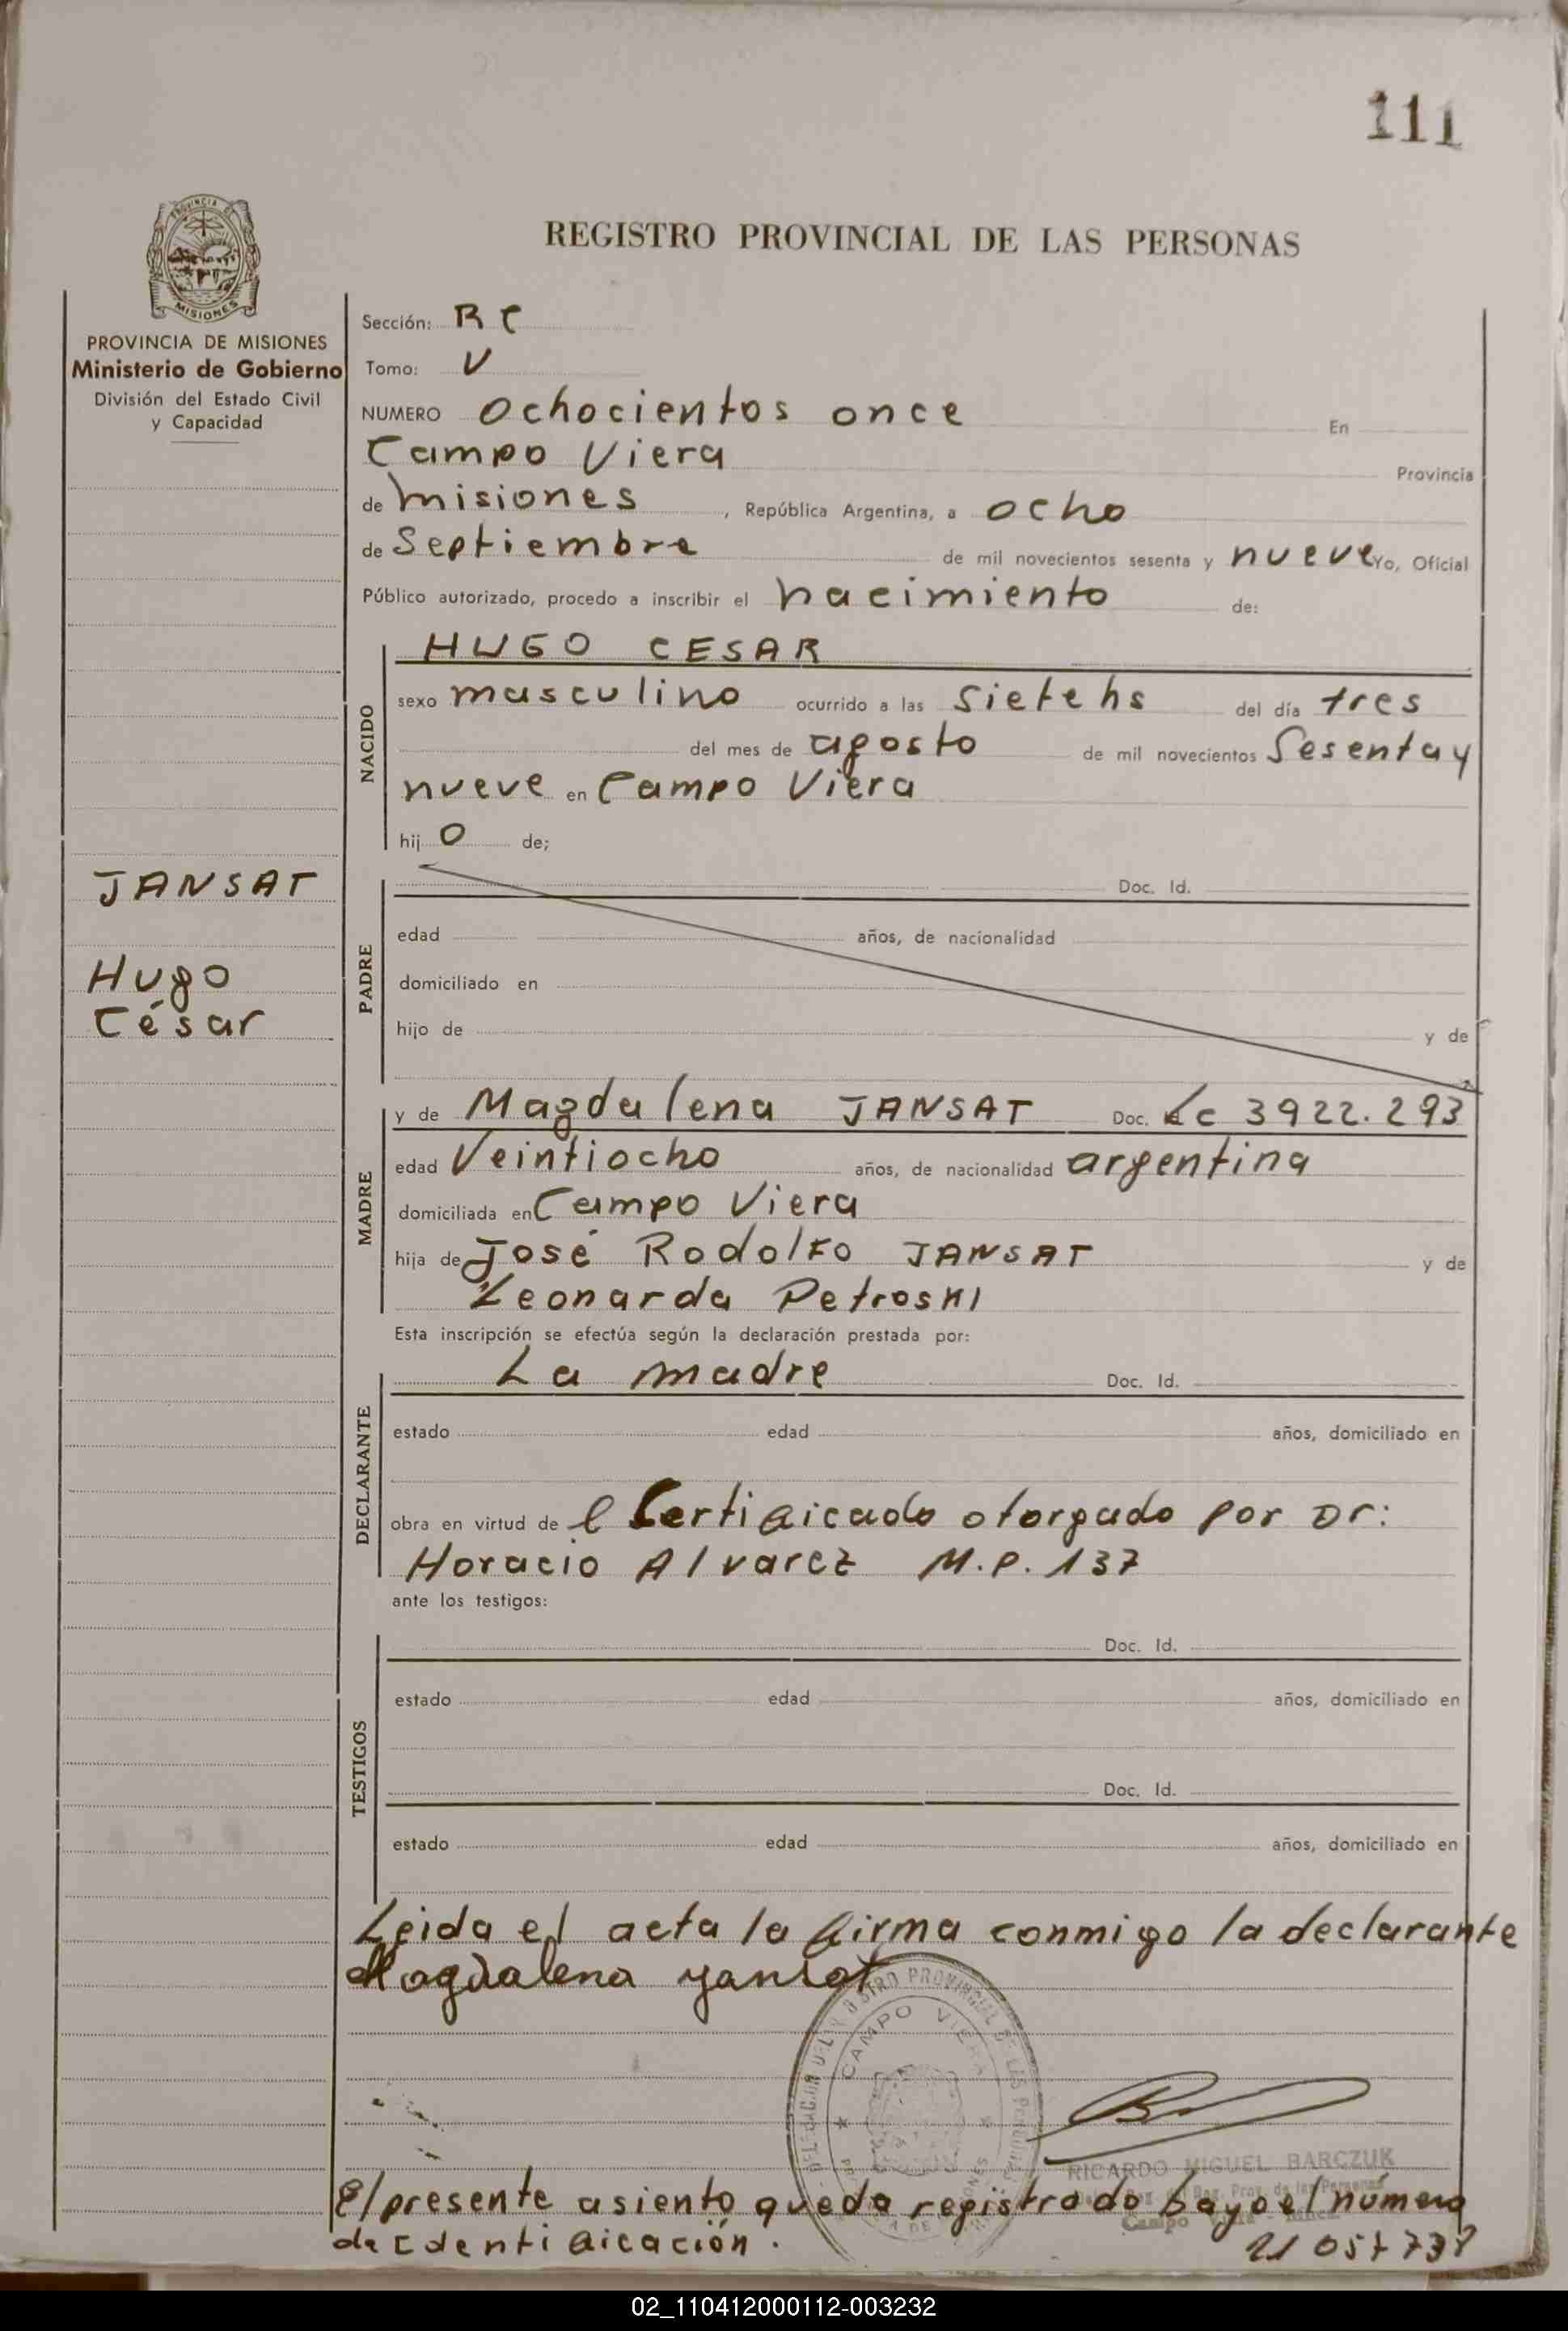 111
REGISTRO PROVINCIAL DE LAS PERSONAS
MISIONES
PROVINCIA DE MISIONES
Ministerio de Gobierno
División del Estado Civil
y Capacidad
JANSAT
Hugo
César
Sección: RC
Tomo: V
NUMERO Ochocientos once En
Campo Viera Provincia
de Misiones, República Argentina, a ocho
de Septiembre de mil novecientos sesenta y nueve Yo, Oficial
Público autorizado, procedo a inscribir el nacimiento de:
NACIDO
HUGO CESAR
sexo masculino ocurrido a las siete hs del día tres
del mes de agosto de mil novecientos Sesenta y
nueve en Campo Viera
hijo de;
PADRE
Doc. Id.
edad años, de nacionalidad
domiciliado en
hijo de y de
MADRE
y de Magdalena JANSAT Doc. Lc 3922.293
edad Veintiocho años, de nacionalidad argentina
domiciliada en Campo Viera
hija de José Rodolfo JANSAT y de
Leonarda Petroski
Esta inscripción se efectúa según la declaración prestada por:
DECLARANTE
La madre Doc. Id.
estado edad años, domiciliado en
obra en virtud de l Certificado otorgado por Dr:
Horacio Alvarez M.P. 137
ante los testigos:
TESTIGOS
Doc. Id.
estado edad años, domiciliado en
Doc. Id.
estado edad años, domiciliado en
Leida el acta la firma conmigo la declarante
Magdalena yansat
CAMPO VIERA
RICARDO MIGUEL BARCZUK
El presente asiento queda registrado bayo el número
de Identificación.
02_110412000112-003232